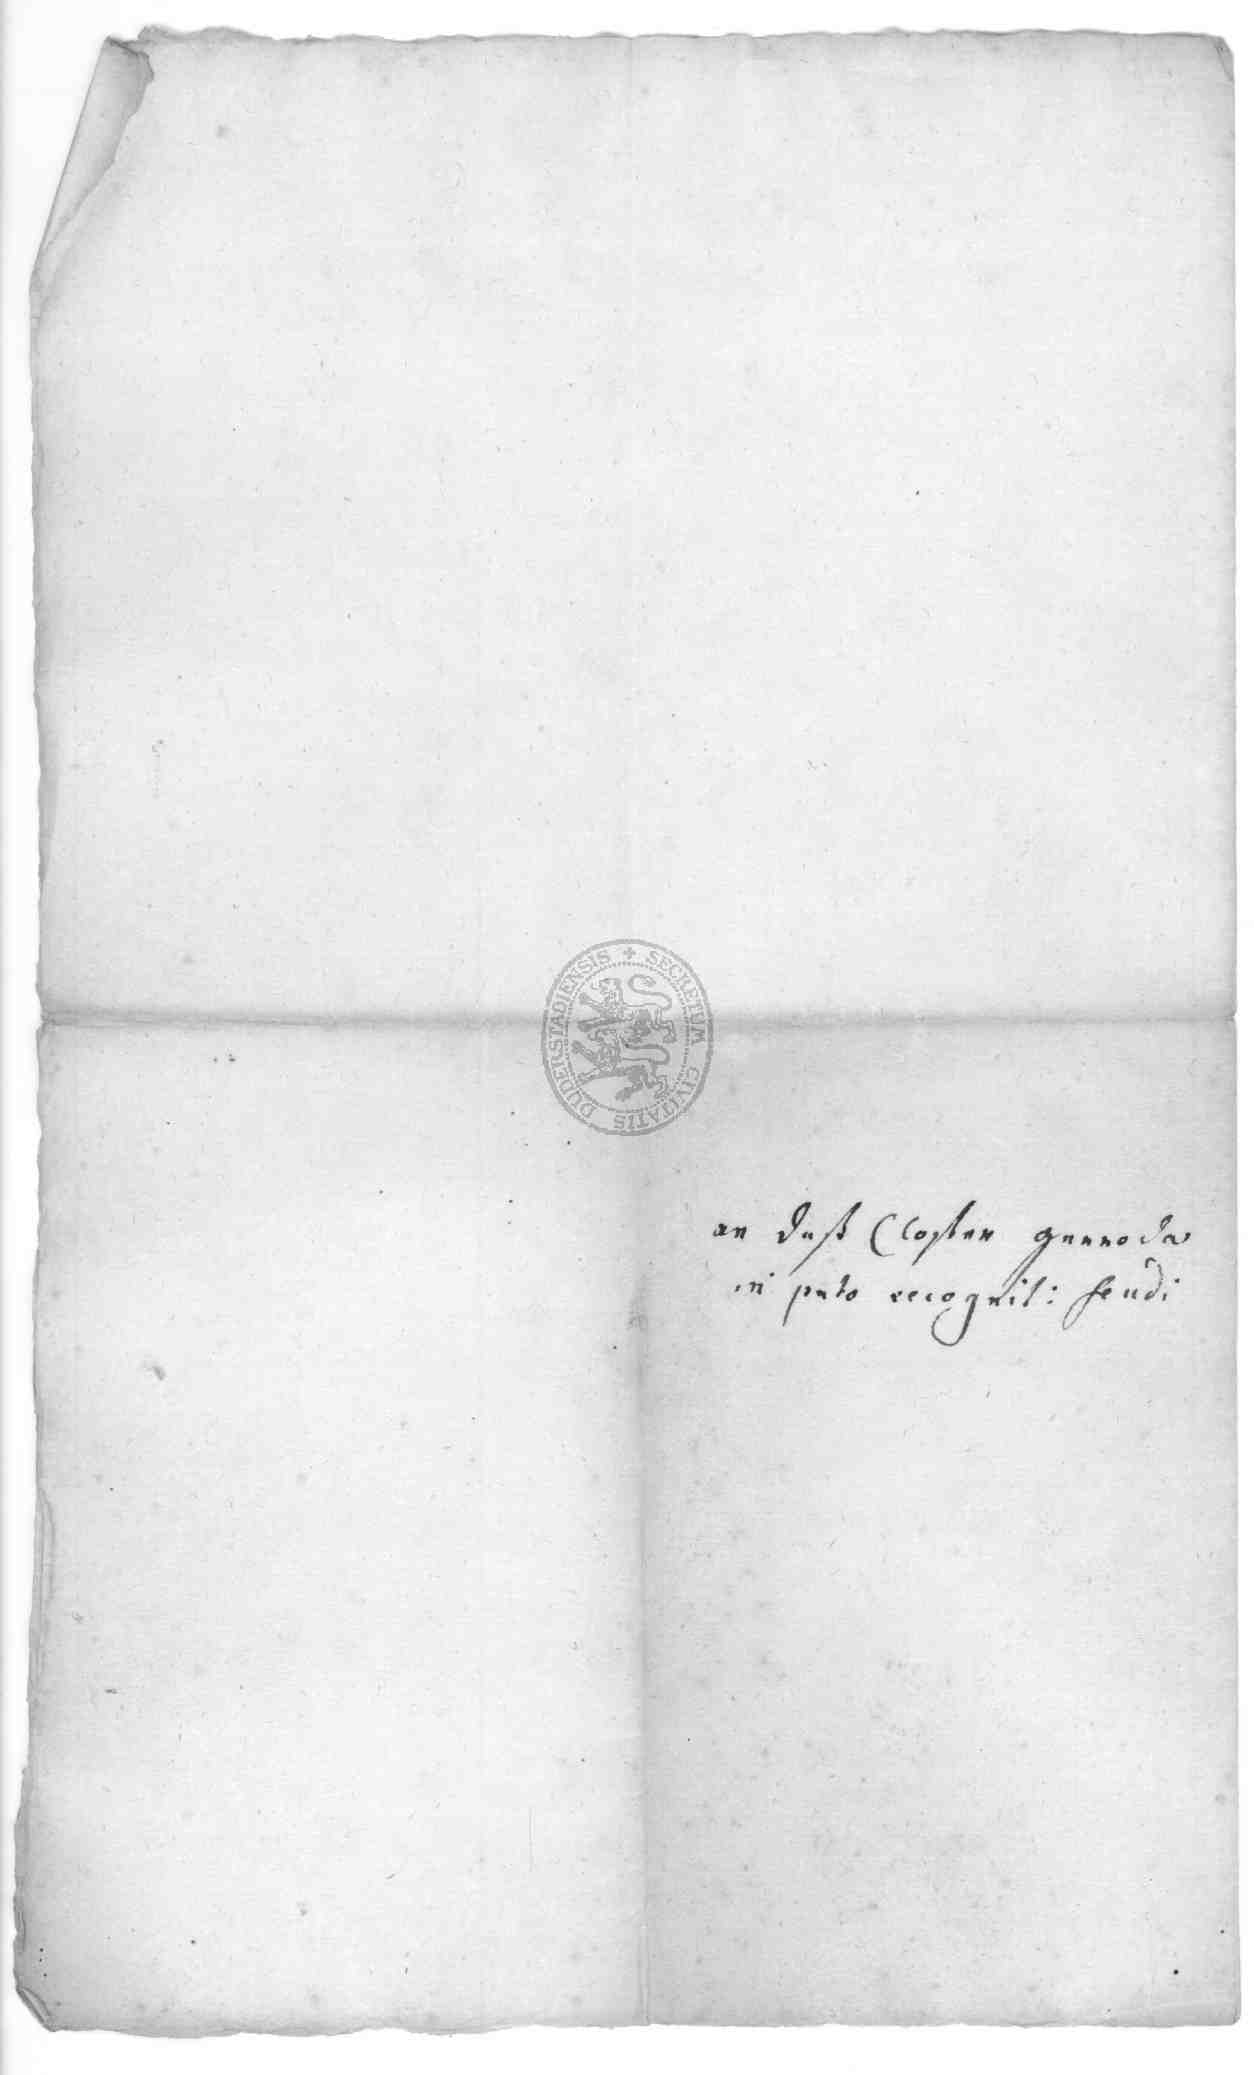 SECRETUM CIVITATIS DUDERSTADIENSIS
an daß Closter gerroda
in pnto recognit: feudi